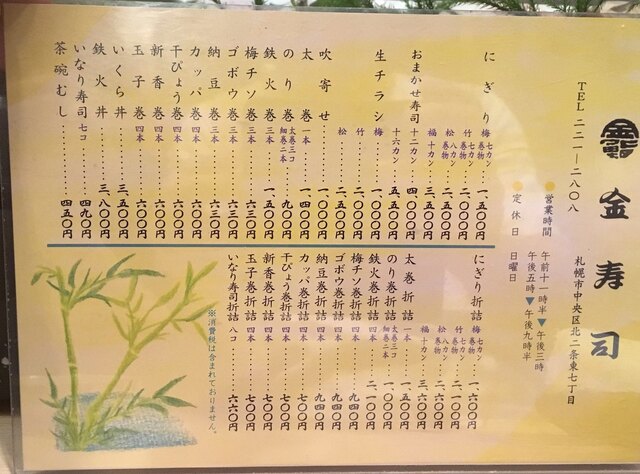 金寿司
札幌市中央区北二条東七丁目
TEL 二二一―二八〇八
営業時間 午前十一時半▼午後三時
午後五時▼午後九時半
定休日 日曜日
にぎり 梅 七カン 巻物 一、五〇〇円
竹 七カン 巻物 二、〇〇〇円
松 八カン 巻物 二、五〇〇円
福 十カン 三、五〇〇円
おまかせ寿司 十二カン 四、〇〇〇円
十六カン 五、五〇〇円
生チラシ 梅 一、〇〇〇円
竹 二、〇〇〇円
松 二、五〇〇円
吹寄せ 二、〇〇〇円
太巻 一本
のり巻 太巻三コ 細巻二本 九〇〇円
鉄火巻 三本 一、五〇〇円
梅チソ巻 三本 六三〇円
ゴボウ巻 三本 六三〇円
納豆巻 三本 六三〇円
カッパ巻 四本 六〇〇円
干ぴょう巻 四本 六〇〇円
新香巻 四本 六〇〇円
玉子巻 四本 六〇〇円
いくら丼 三、五〇〇円
鉄火丼 三、八〇〇円
いなり寿司 七コ 四九〇円
茶碗むし 四五〇円
にぎり折詰 梅 七カン 一、六〇〇円
竹 七カン 巻物 二、一〇〇円
松 八カン 巻物 二、六〇〇円
福 十カン 三、六〇〇円
太巻折詰 一本 一、五〇〇円
のり巻折詰 太巻三コ 細巻二本 一、〇〇〇円
鉄火巻折詰 四本 二、一〇〇円
梅チソ巻折詰 四本 九四〇円
ゴボウ巻折詰 四本 九四〇円
納豆巻折詰 四本 九四〇円
カッパ巻折詰 四本 七〇〇円
干ぴょう巻折詰 四本 七〇〇円
新香巻折詰 四本 七〇〇円
玉子巻折詰 四本 七〇〇円
いなり寿司折詰 八コ 六六〇円
※消費税は含まれておりません。